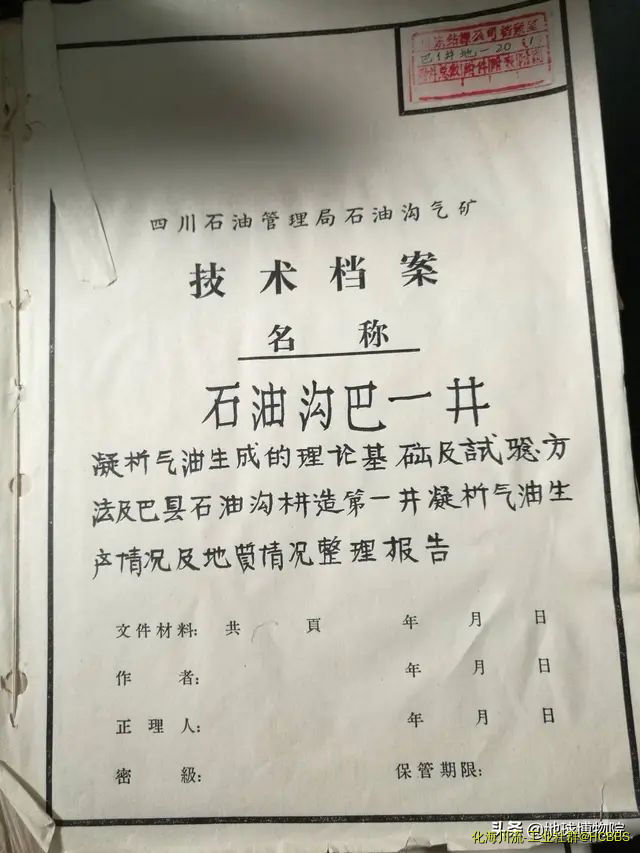 巴1井地-20
四川石油管理局石油沟气矿
技术档案
名 称
石油沟巴一井
凝析气油生成的理论基础及試驗方
法及巴县石油沟构造第一井凝析气油生
产情况及地質情况整理报告
文件材料: 共 頁 年 月 日
作 者: 年 月 日
正理人: 年 月 日
密 級: 保管期限:
头条@地球博物院
化海川流-工业社群@HCBBS